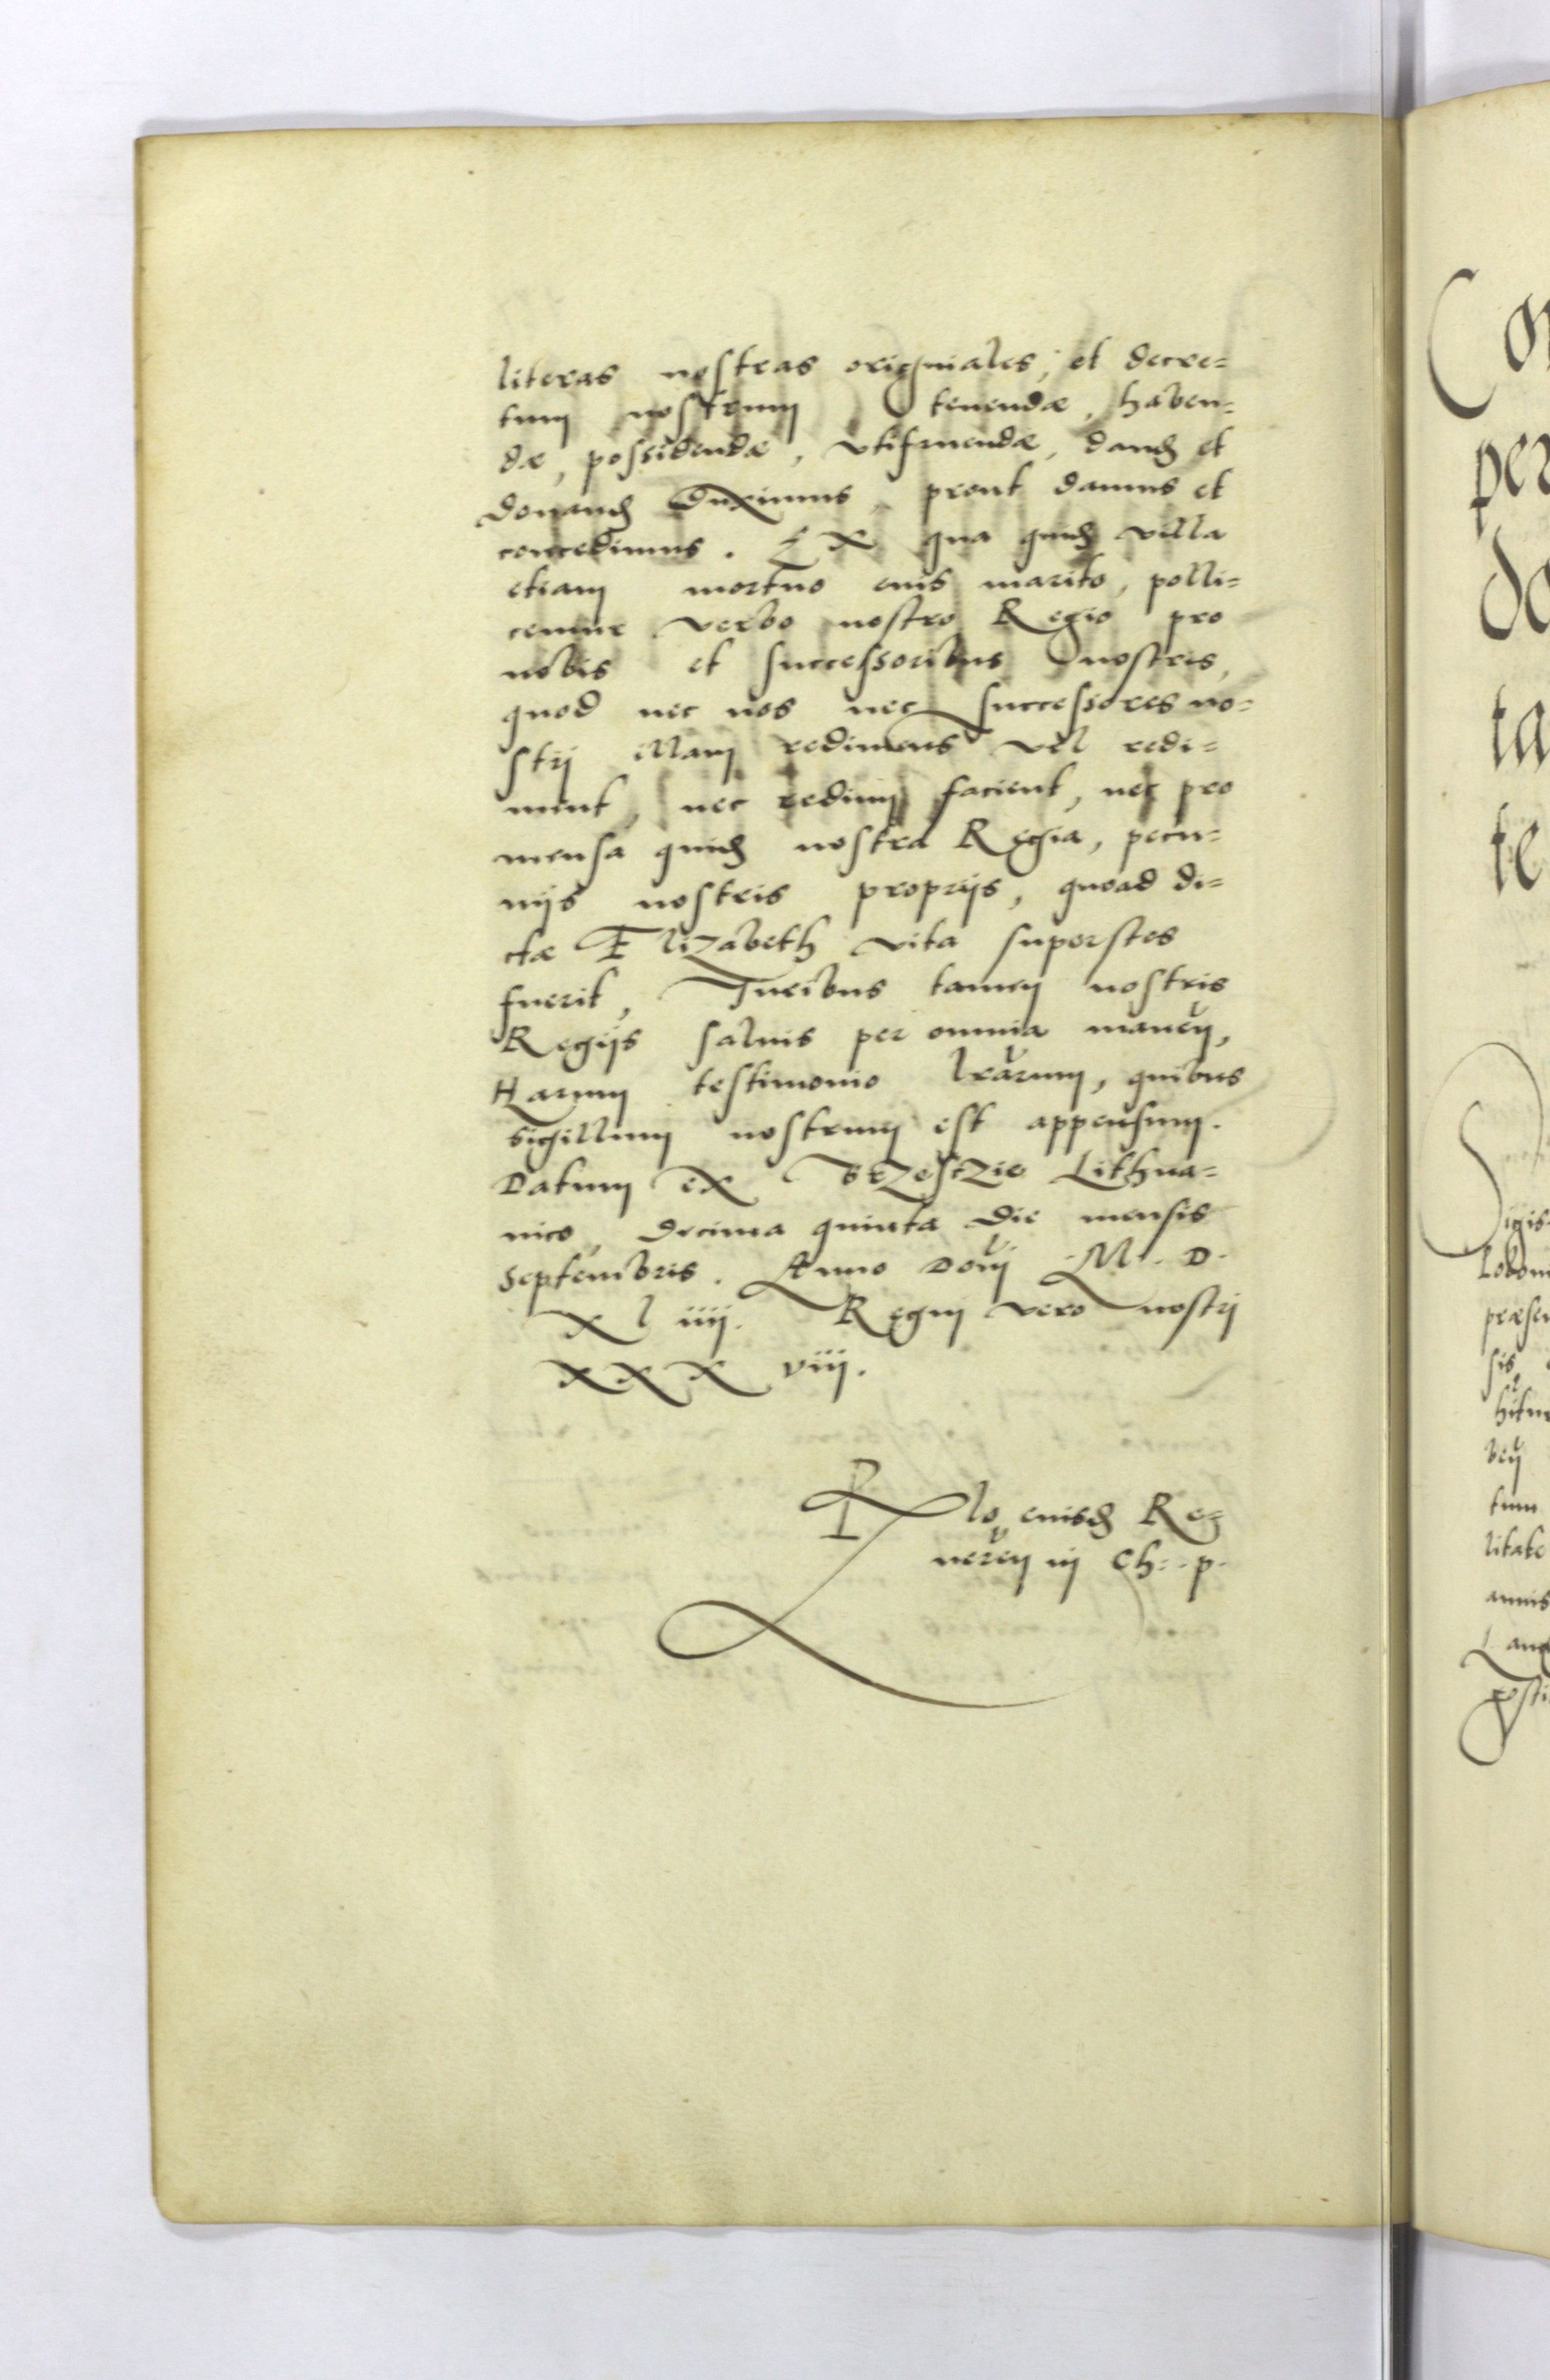 literas nostras originales, et decre=
tum nostrum tenendæ, haben=
dæ, possidendæ, vtifruendæ, dand et
donand Duximus, prout damus et
concedimus. Ex qua quid villa
etiam mortuo eius marito, polli=
cemur verbo nostro Regio pro
nobis et successoribus nostris,
quod nec nos nec successores no=
strj illam redimemus vel redi=
ment, nec redimj facient, nec pro
mensa quid nostra Regia, pecu=
nijs nostris proprijs, quoad di=
ctæ Elizabeth vita superstes
fuerit, Iuribus tamen nostris
Regijs saluis per omnia manen,
Harum testimonio lrarum, quibus
sigillum nostrum est appensum.
Datum ex Brzesczie Lithua=
nico, decima quinta Die mensis
Septembris. Anno Donj M. D.
X l iiij. Regnj vero nostrj
XXX viij.
Rlo eiusd Re=
neren in Ch: p.
Con
per
da
ta
te
Sigis
præsen
sis
tum
litate
annis